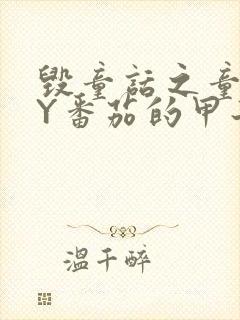 毁童话之童
Y番茄的甲
温千醉